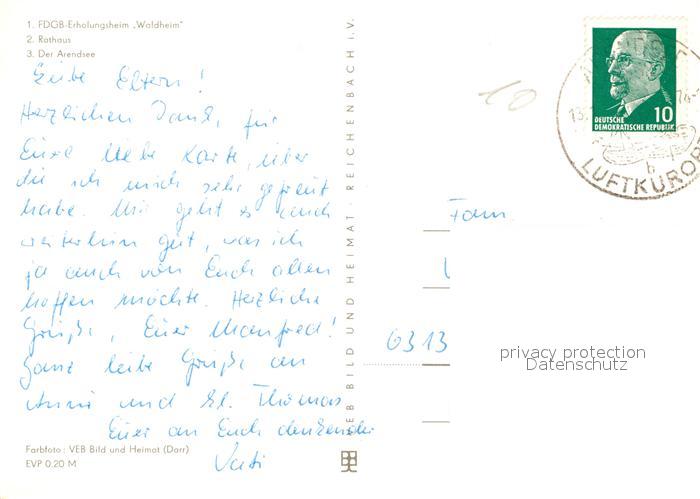 1. FDGB-Erholungsheim „Waldheim"
2. Rathaus
3. Der Arendsee
Liebe Eltern!
Herzlichen Dank, für
Eure liebe Karte, über
die ich mich sehr gefreut
habe. Mir geht es auch
weiterhin gut, was ich
ja auch von Euch allen
hoffen möchte. Herzliche
Grüße, Euer Manfred!
Ganz liebe Grüße an
Anni und Kl. Thomas
Euer an Euch denkender
Vati
Farbfoto: VEB Bild und Heimat (Darr)
EVP 0.20 M
VEB BILD UND HEIMAT REICHENBACH i.V.
10
DEUTSCHE
DEMOKRATISCHE REPUBLIK
10
b
LUFTKURORT
Fam
6313
privacy protection
Datenschutz